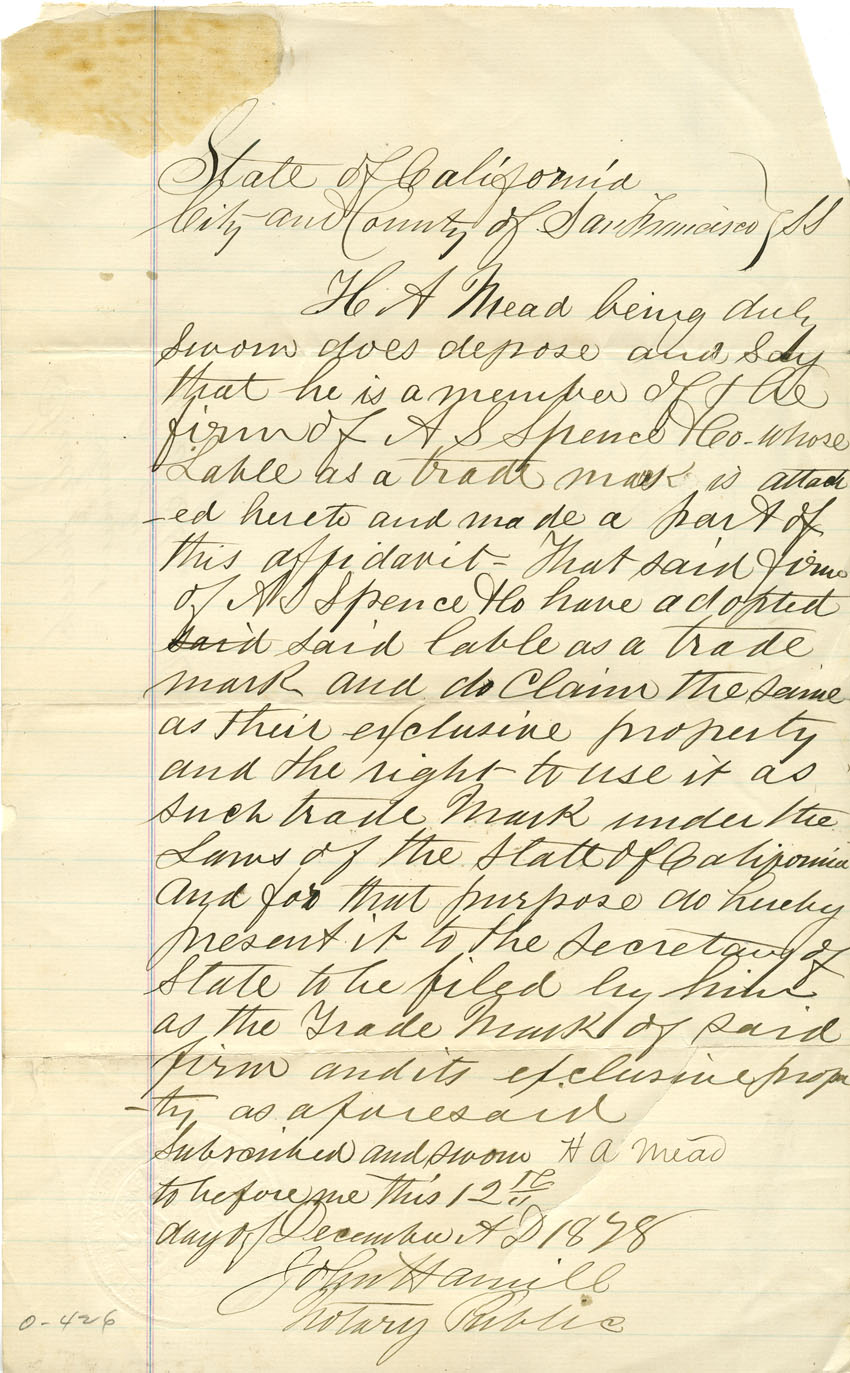 State of California
City and County of San Francisco } SS
H A Mead being duly
sworn does depose and say
that he is a member of the
firm of A S Spence & Co - whose
Lable as a trade mark is attach
-ed hereto and made a part of
this affidavit - That said firm
of A S Spence & Co have adopted
said said lable as a trade
mark and do Claim the same
as their exclusive property
and the right to use it as
such trade Mark under the
Laws of the State of California
and for that purpose do hereby
present it to the Secretary of
State to be filed by him
as the Trade Mark of said
firm and its exclusive proper
-ty as aforesaid
Subscribed and sworn H A Mead
to before me this 12th
day of December A D 1878
John Hamill
Notary Public
0-426